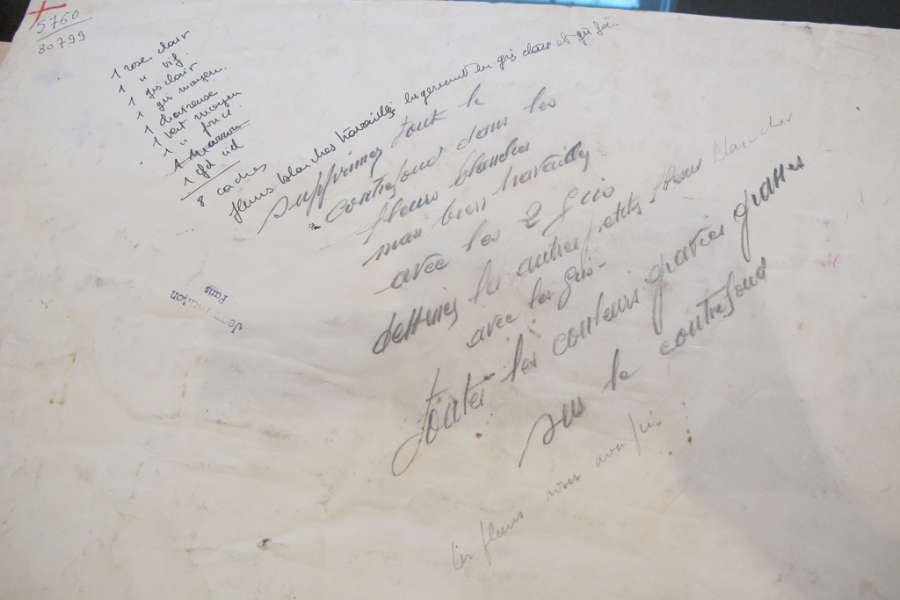 5760
30799
1 rose clair
1 " vif
1 gris clair
1 gris moyen
1 chartreuse
1 vert moyen
1 " foncé
1 marron
1 gd ciel
8 cadres
fleurs blanches travaillées légèrement en gris clair et gris
supprimer tout le
contrefond dans les
fleurs blanches
mais bien travailler
avec les 2 gris
dessiner les autres petites fleurs blanches
avec les gris
toutes les couleurs gravées grasses
sur le contrefond
Les fleurs roses
Paris